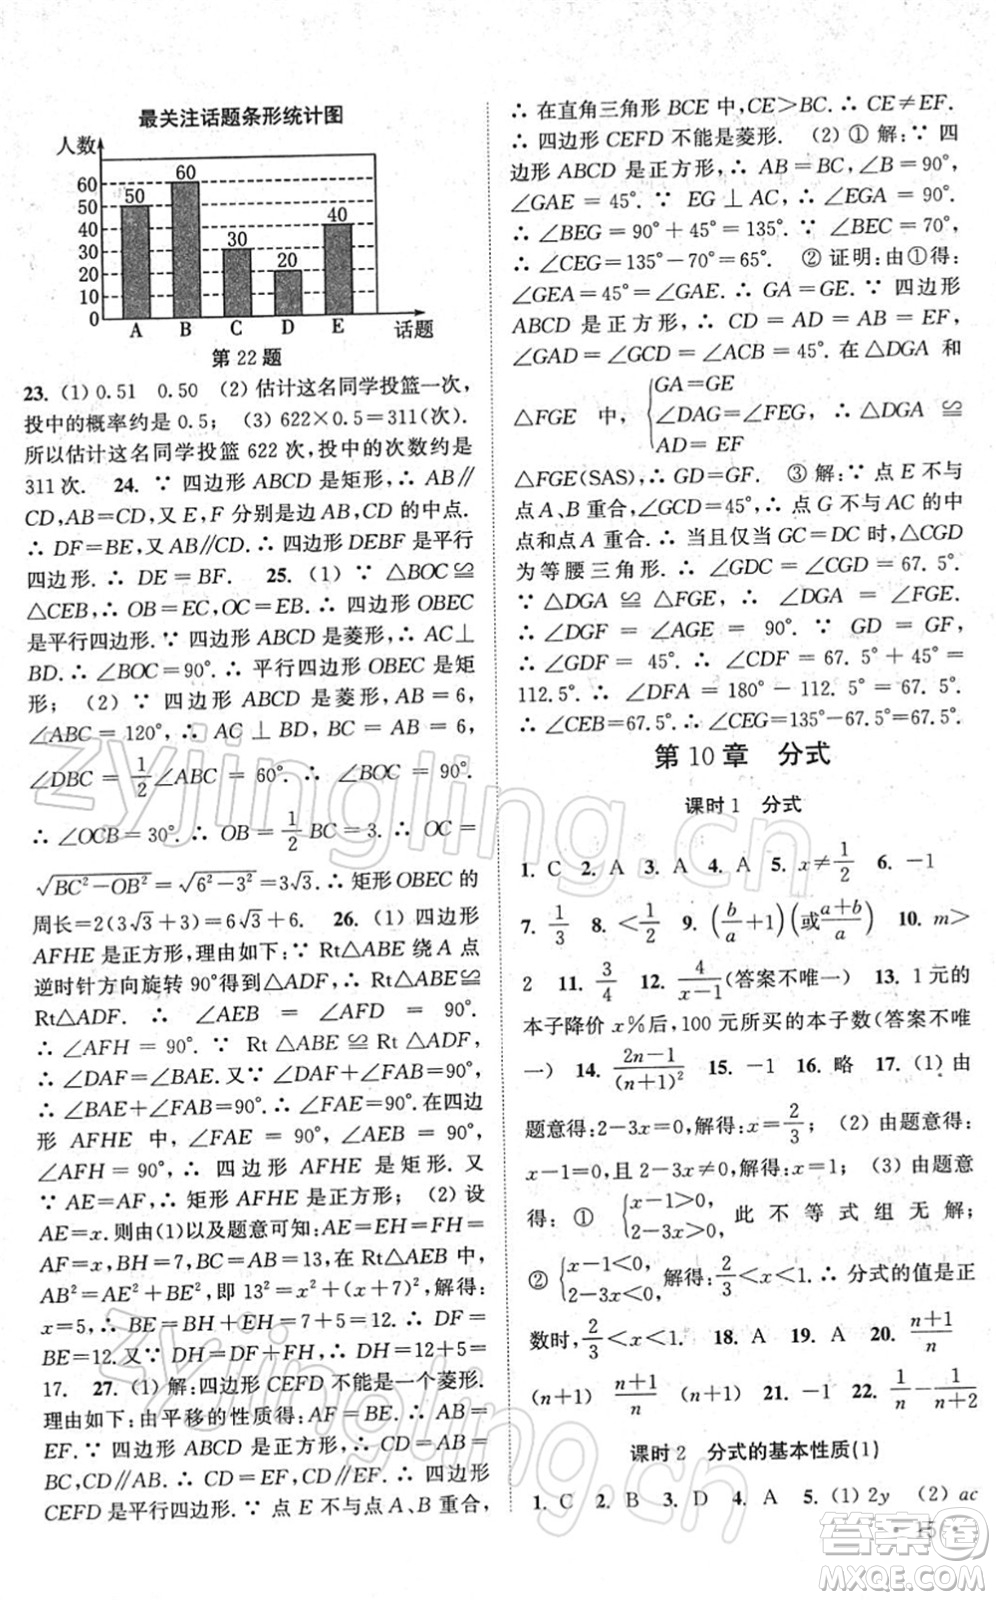 最关注话题条形统计图
人数
60
50
40
30
20
10
0
50
60
30
20
40
A B C D E 话题
第 22 题
23. (1) 0.51 0.50 (2) 估计这名同学投篮一次,
投中的概率约是 0.5； (3) 622×0.5=311(次).
所以估计这名同学投篮 622 次,投中的次数约是
311 次. 24. ∵ 四边形 ABCD 是矩形,∴ AB∥
CD,AB=CD,又 E,F 分别是边 AB,CD 的中点.
∴ DF=BE,又 AB∥CD.∴ 四边形 DEBF 是平行
四边形.∴ DE=BF. 25. (1) ∵ △BOC≌
△CEB,∴ OB=EC,OC=EB.∴ 四边形 OBEC
是平行四边形.∵ 四边形 ABCD 是菱形,∴ AC⊥
BD.∴ ∠BOC=90°.∴ 平行四边形 OBEC 是矩
形； (2) ∵ 四边形 ABCD 是菱形,AB=6,
∠ABC=120°,∴ AC⊥BD, BC=AB=6,
∠DBC=1/2∠ABC=60°.∴ ∠BOC=90°.
∴ ∠OCB=30°.∴ OB=1/2BC=3.∴ OC=
√(BC²-OB²)=√(6²-3²)=3√3.∴ 矩形 OBEC 的
周长=2(3√3+3)=6√3+6. 26. (1) 四边形
AFHE 是正方形,理由如下:∵ Rt△ABE 绕 A 点
逆时针方向旋转 90°得到△ADF,∴ Rt△ABE≌
Rt△ADF. ∴ ∠AEB=∠AFD=90°.
∴ ∠AFH=90°.∵ Rt△ABE≌Rt△ADF,
∴ ∠DAF=∠BAE.又∵ ∠DAF+∠FAB=90°,
∴ ∠BAE+∠FAB=90°.∴ ∠FAE=90°.在四边
形 AFHE 中, ∠FAE=90°, ∠AEB=90°,
∠AFH=90°,∴ 四边形 AFHE 是矩形.又
∵ AE=AF,∴ 矩形 AFHE 是正方形； (2) 设
AE=x.则由(1)以及题意可知:AE=EH=FH=
AF=x,BH=7,BC=AB=13,在 Rt△AEB 中,
AB²=AE²+BE²,即 13²=x²+(x+7)²,解得:
x=5,∴ BE=BH+EH=7+5=12,∴ DF=
BE=12.又∵ DH=DF+FH,∴ DH=12+5=
17. 27. (1) 解:四边形 CEFD 不能是一个菱形.
理由如下:由平移的性质得:AF=BE.∴ AB=
EF.∵ 四边形 ABCD 是正方形,∴ AB=CD=
BC,CD∥AB.∴ CD=EF,CD∥EF.∴ 四边形
CEFD 是平行四边形.∵ 点 E 不与点A、B 重合,
∴ 在直角三角形 BCE 中,CE>BC.∴ CE≠EF.
∴ 四边形 CEFD 不能是菱形. (2) ① 解:∵ 四
边形 ABCD 是正方形,∴ AB=BC,∠B=90°,
∠GAE=45°.∵ EG⊥AC,∴ ∠EGA=90°.
∴ ∠BEG=90°+45°=135°.∵ ∠BEC=70°,
∴ ∠CEG=135°-70°=65°. ② 证明:由①得:
∠GEA=45°=∠GAE.∴ GA=GE.∵ 四边形
ABCD 是正方形,∴ CD=AD=AB=EF,
∠GAD=∠GCD=∠ACB=45°.在△DGA 和
△FGE 中, { GA=GE ∠DAG=∠FEG, AD=EF ∴ △DGA≌
△FGE(SAS),∴ GD=GF. ③ 解:∵ 点 E 不与
点A、B 重合,∠GCD=45°,∴ 点 G 不与 AC 的中
点和点A 重合.∴ 当仅当 GC=DC 时,△CGD
为等腰三角形.∴ ∠GDC=∠CGD=67.5°.
∵ △DGA≌△FGE,∴ ∠DGA=∠FGE.
∴ ∠DGF=∠AGE=90°.∵ GD=GF,
∴ ∠GDF=45°.∴ ∠CDF=67.5°+45°=
112.5°.∴ ∠DFA=180°-112.5°=67.5°.
∴ ∠CEB=67.5°.∴ ∠CEG=135°-67.5°=67.5°.
第 10 章 分式
课时 1 分式
1. C 2. A 3. A 4. A 5. x≠1/2 6. -1
7. 1/3 8. <1/2 9. (b/a+1)(或(a+b)/a) 10. m>
2 11. 3/4 12. 4/(x-1)(答案不唯一) 13. 1 元的
本子降价 x%后,100 元所买的本子数(答案不唯
一) 14. (2n-1)/(n+1)² 15. -1 16. 略 17. (1) 由
题意得:2-3x=0,解得:x=2/3； (2) 由题意得:
x-1=0,且 2-3x≠0,解得:x=1； (3) 由题意
得: ① { x-1>0, 2-3x>0, 此不等式组无解；
② { x-1<0, 2-3x<0, 解得:2/3<x<1.∴ 分式的值是正
数时,2/3<x<1. 18. A 19. A 20. (n+1)/n
(n+1) (n+1)/n (n+1) 21. -1 22. 1/n-1/(n+2)
课时 2 分式的基本性质(1)
1. C 2. B 3. D 4. A 5. (1) 2y (2) ac
15
zyjingling.cn
zyjingling.cn
答案圈
MXQE.COM